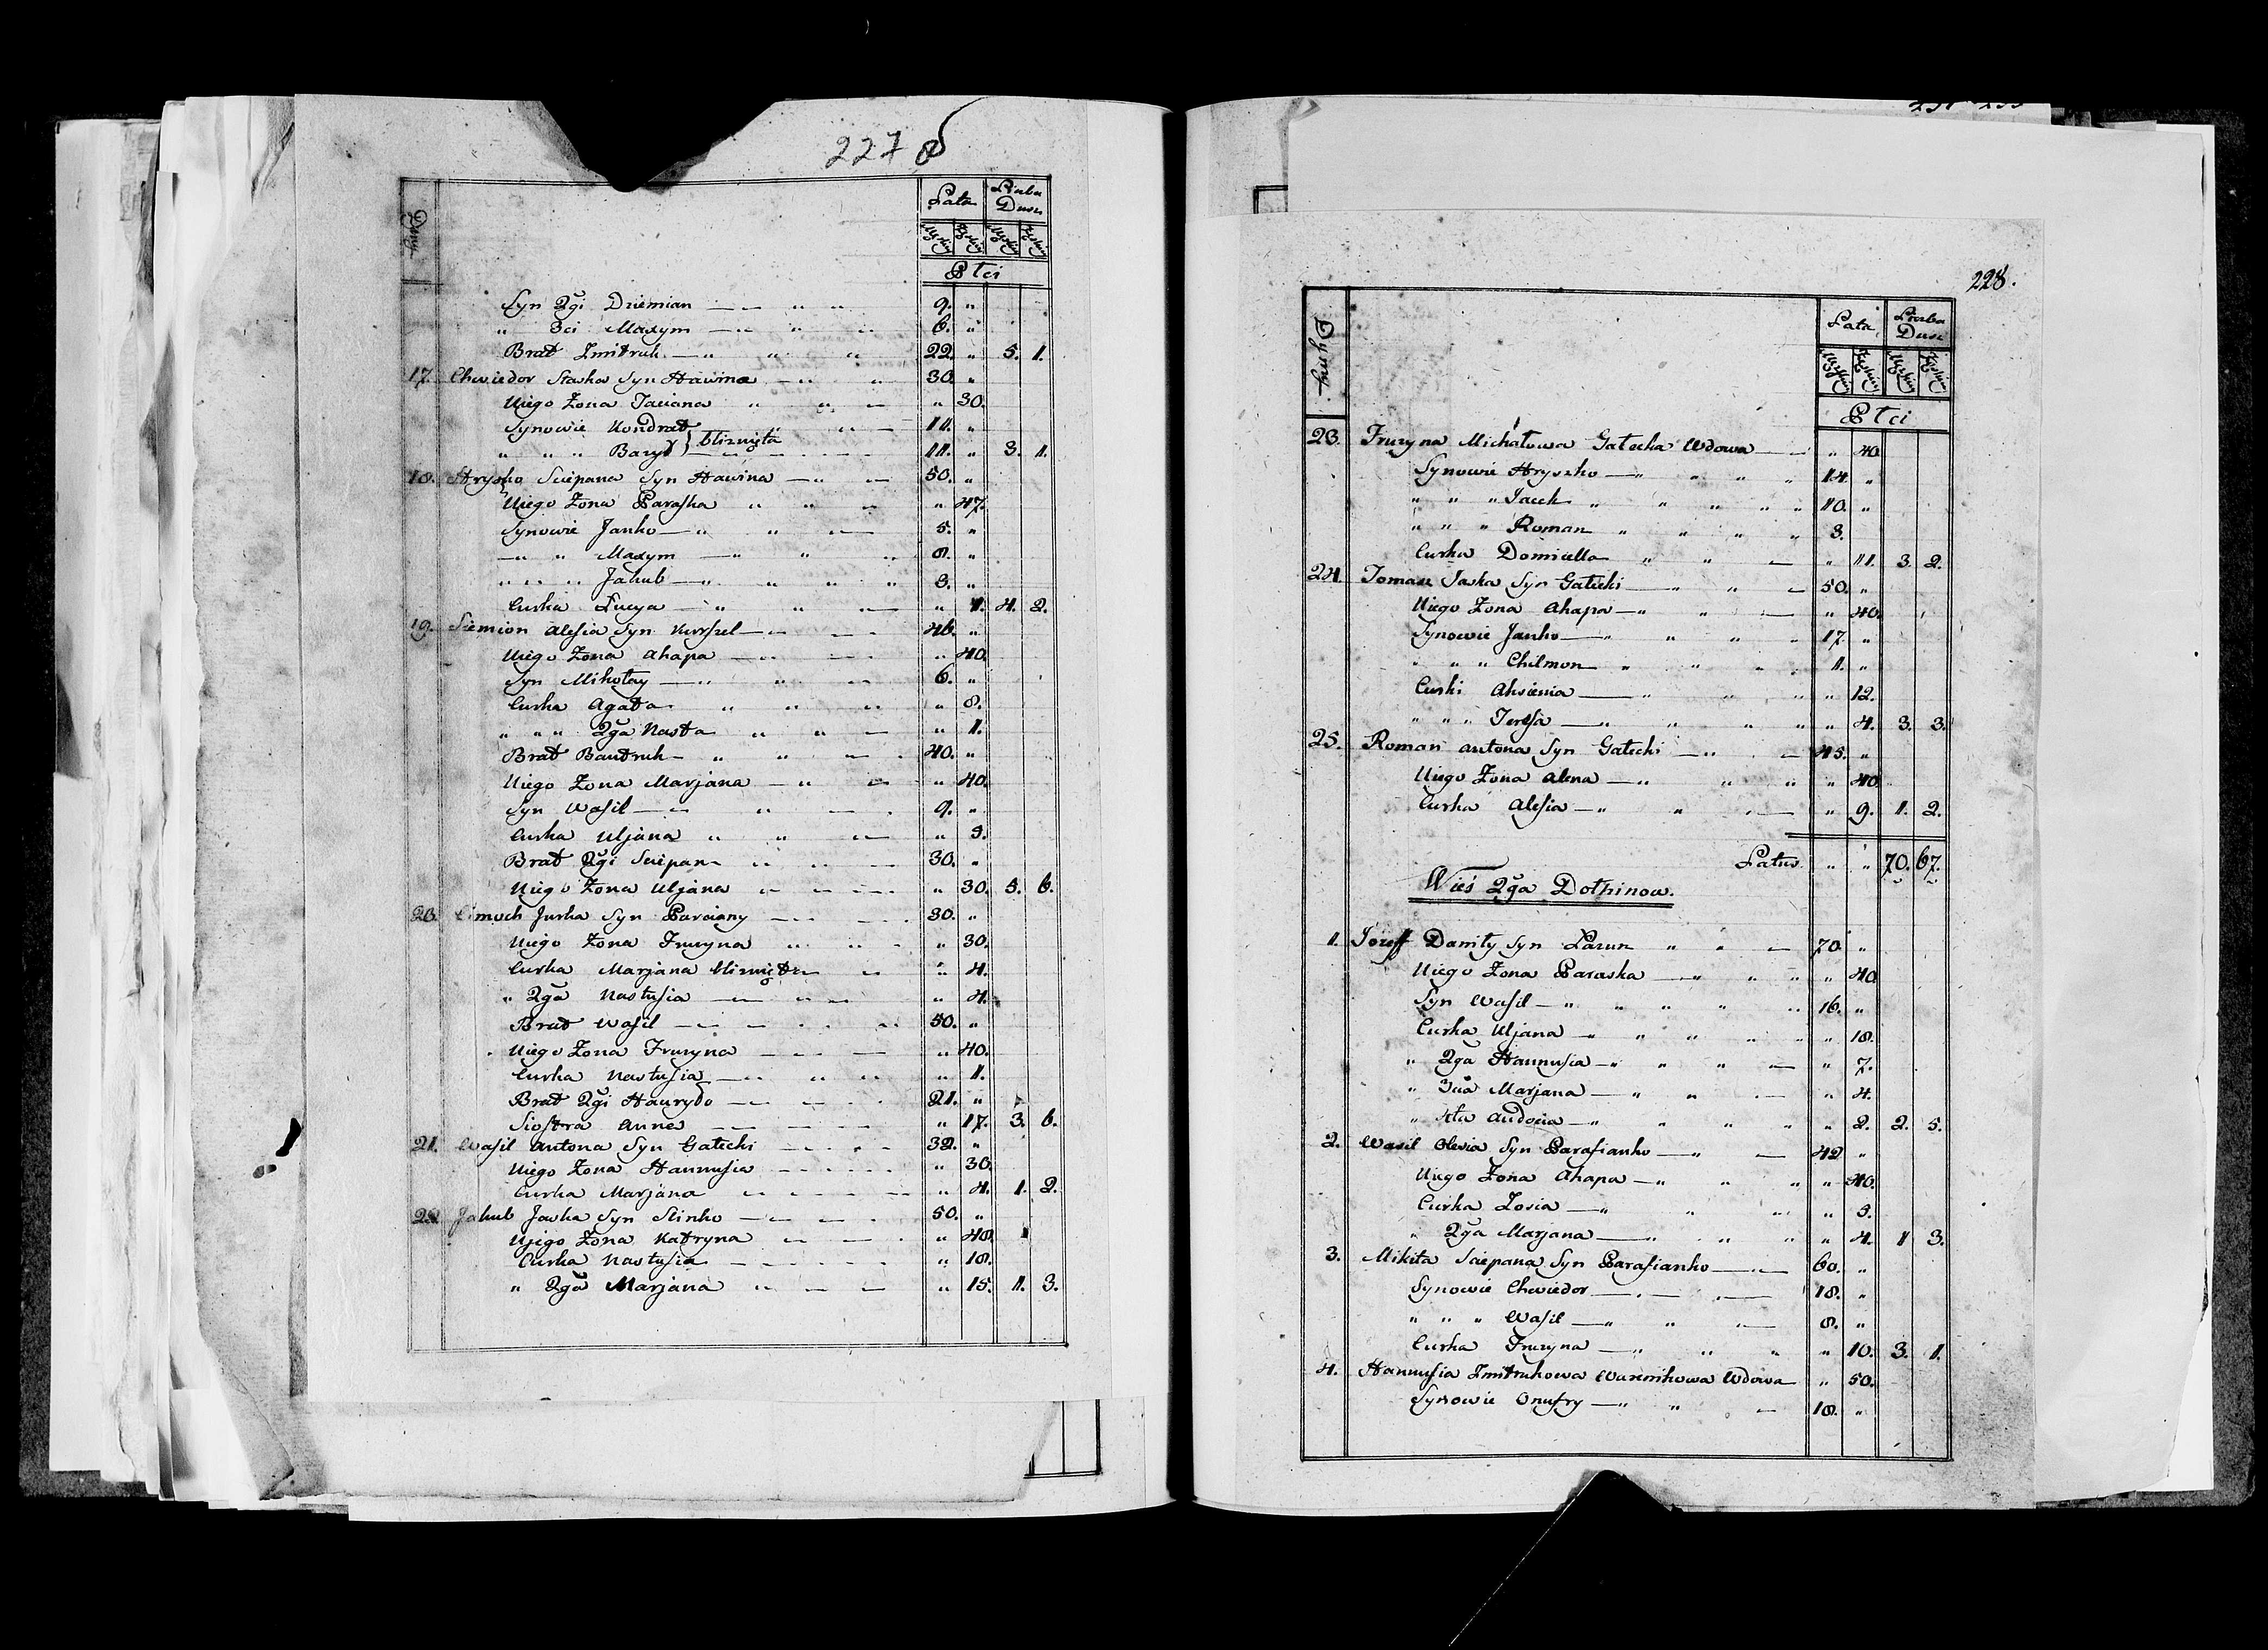 227
Dymy
Lata
Liczba Dusz
Męskiey
Żeńskiey
Męskiey
Żeńskiey
Płci
Syn 2gi Dziemian 9. "
" 3ci Maxym 6. "
Brat Zmitruk 22. " 5. 1.
17. Chwiedor Staska Syn Hawina 30. "
Uiego Żona Taciana " 30.
Synowie Kondrat 11. "
" " " Bazyl } bliznięta 11. " 3. 1.
18. Hryszko Sciepana Syn Hawina 50. "
Uiego Żona Paraska " 47.
Synowie Janko 5. "
" " Maxym 8. "
" " " Jakub 3. "
Curka Lucya " 11. 4. 2.
19. Siemion Alesia Syn Kurszel 46. "
Uiego Żona Ahapa " 40.
Syn Mikołay 6. "
Curka Agata " 8.
" " " 2ga Nasta " 1.
Brat Bautruk 40. "
Uiego Żona Marjana " 40.
Syn Wasil 9. "
Curka Uljana " 3.
Brat 2gi Sciepan 30. "
Uiego Żona Uljana " 30. 5. 6.
20. Cimoch Jurka Syn Parciany 30. "
Uiego Żona Fruzyna " 30.
Curka Marjana bliznięta " 4.
" 2ga Nastusia " 4.
Brat Wasil 50. "
Uiego Żona Fruzyna " 40.
Curka Nastusia " 11.
Brat 2gi Hauryło 21. "
Siostra Anna " 17. 3. 6.
21. Wasil Antona Syn Gatecki 32. "
Uiego Żona Hannusia " 30.
Curka Marjana " 4. 1. 2.
22. Jakub Jaska Syn Slinko 50. "
Ujego Żona Katryna " 48.
Curka Nastusia " 18.
" 2ga Marjana " 15. 1. 3.
228.
Dymy
Lata
Liczba Dusz
Męskiey
Żeńskiey
Męskiey
Żeńskiey
Płci
23. Fruzyna Michałowa Gatecka Wdowa " 40.
Synowie Hryszko 14. "
" " " Jacek 10. "
" " " Roman 3.
Curka Domicella " 11. 3. 2.
24. Tomasz Jaska Syn Gatecki 50. "
Uiego Żona Ahapa " 40.
Synowie Janko 17. "
" " " Chilmon 11. "
Curki Aksienia " 12.
" " " Teresa " 4. 3. 3.
25. Roman Antona Syn Gatecki 45. "
Uiego Żona Alena " 40.
Curka Alesia " 9. 1. 2.
Latus " " 70. 67.
Wieś 2ga Dołhinow.
1. Jozeff Daniły Syn Łazun 70. "
Uiego Żona Paraska " 40.
Syn Wasil 16. "
Curka Uljana " 18.
" 2ga Hannusia " 7.
" 3cia Marjana " 4.
" 4ta Audocia " 2. 2. 5.
2. Wasil Olesia Syn Parafianko 42 "
Uiego Żona Ahapa " 40.
Curka Zosia " 9.
" 2ga Marjana " 4. 1 3.
3. Mikita Sciepana Syn Parafianko 60. "
Synowie Chwiedor 18. "
" " " Wasil 8. "
Curka Fruzyna " 10. 3. 1.
4. Hannusia Zmitrukowa Wdowa " 50.
Synowie Onufry 18. "